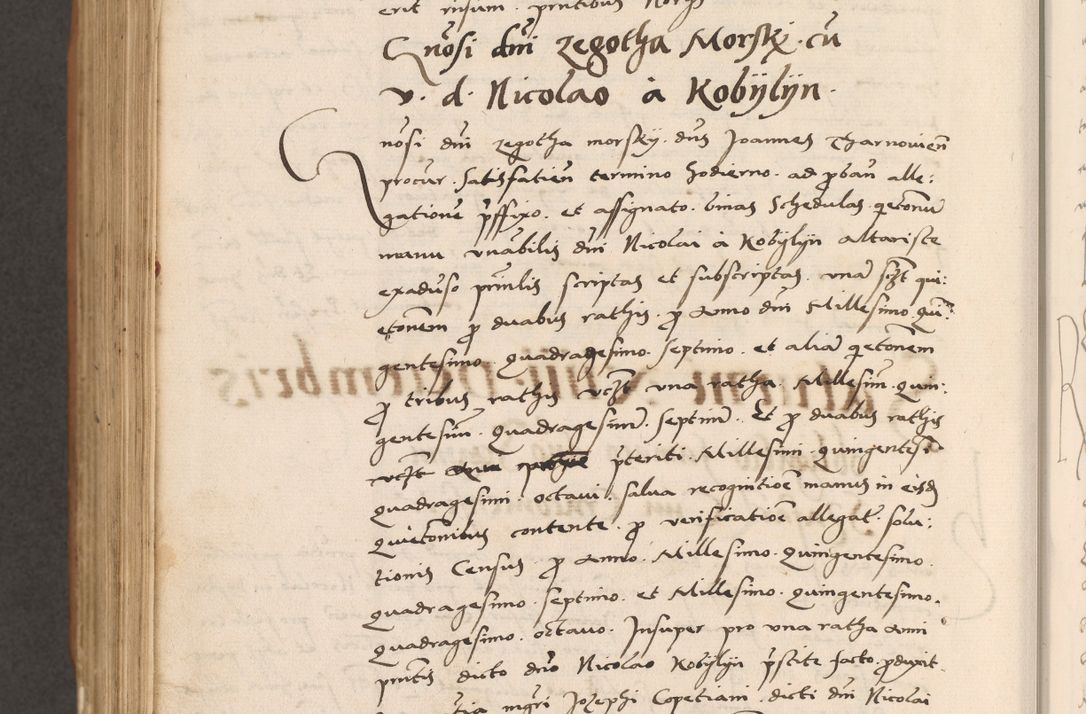 erit visum
Gnosi dni Zegotha Morsky. cu
v. d. Nicolao à Kobÿlÿn.
nosi dni zegotha morsky. dns Joannes Tharnowien
procur. Satisfatien termino hodierno. ad pban alle:
gatione pffixo. et assignato. binas Schedulas qetonu
manu vnabilis dni Nicolai à Kobÿlÿn altariste
exaduso pnlis scriptas et subscriptas. vna sczt qui:
etonem p duabus rathis. p Anno dni Millesimo. qin:
gentesimo. quadragesimo. septimo. et alia qietonem
p tribus rathis vczt vna ratha. Millesim. quin:
gentesim. quadragesim. septim. Et p duabus rathis
vczt pteriti. Millesimi. quingentesi
quadragesimi. octavi. salva recognitioe manus in eisd
quietonibus contente. p verificatioe allegat. solu:
tionis Census p Anno. Millesimo. quingentesimo.
quadragesimo. septimo. et Millesimo. quingentesimo.
quadragesimo. octauo. Insuper pro vna ratha Anni
pntis dicto dno Nicolao Kobÿlÿn pstite facto. pduxit.
mgri Jozephi Copetiani. dicti dni Nicolai